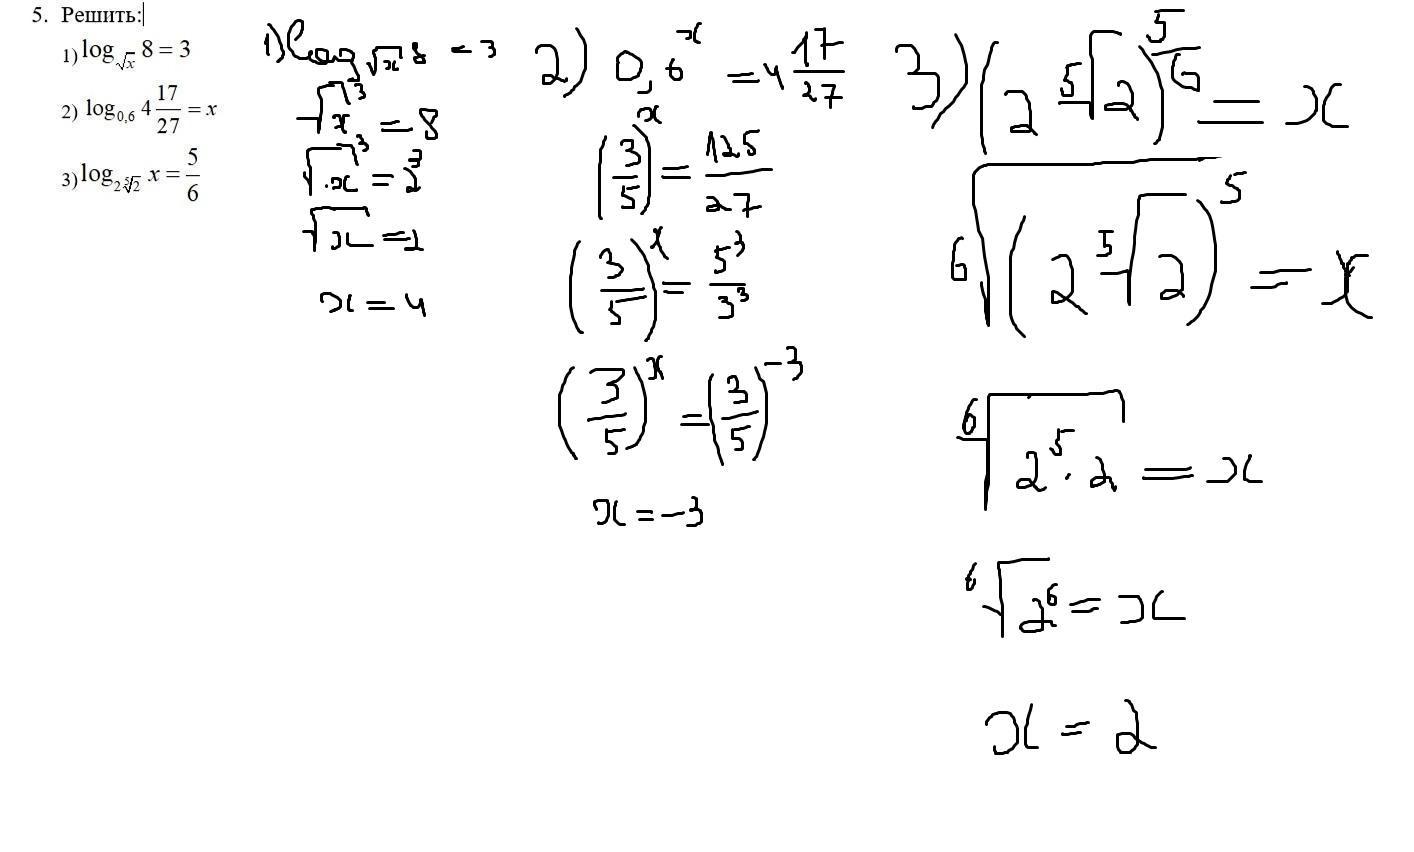 5. Решить:
1) log_{√x} 8 = 3
2) log_{0,6} 4 17/27 = x
3) log_{2⁵√2} x = 5/6
1) log_{√x} 8 = 3
√x³ = 8
√x³ = 2³
√x = 2
x = 4
2) 0,6^x = 4 17/27
(3/5)^x = 125/27
(3/5)^x = 5³/3³
(3/5)^x = (3/5)^{-3}
x = -3
3) (2 ⁵√2)^{5/6} = x
⁶√((2 ⁵√2)⁵) = x
⁶√(2⁵·2) = x
⁶√(2⁶) = x
x = 2